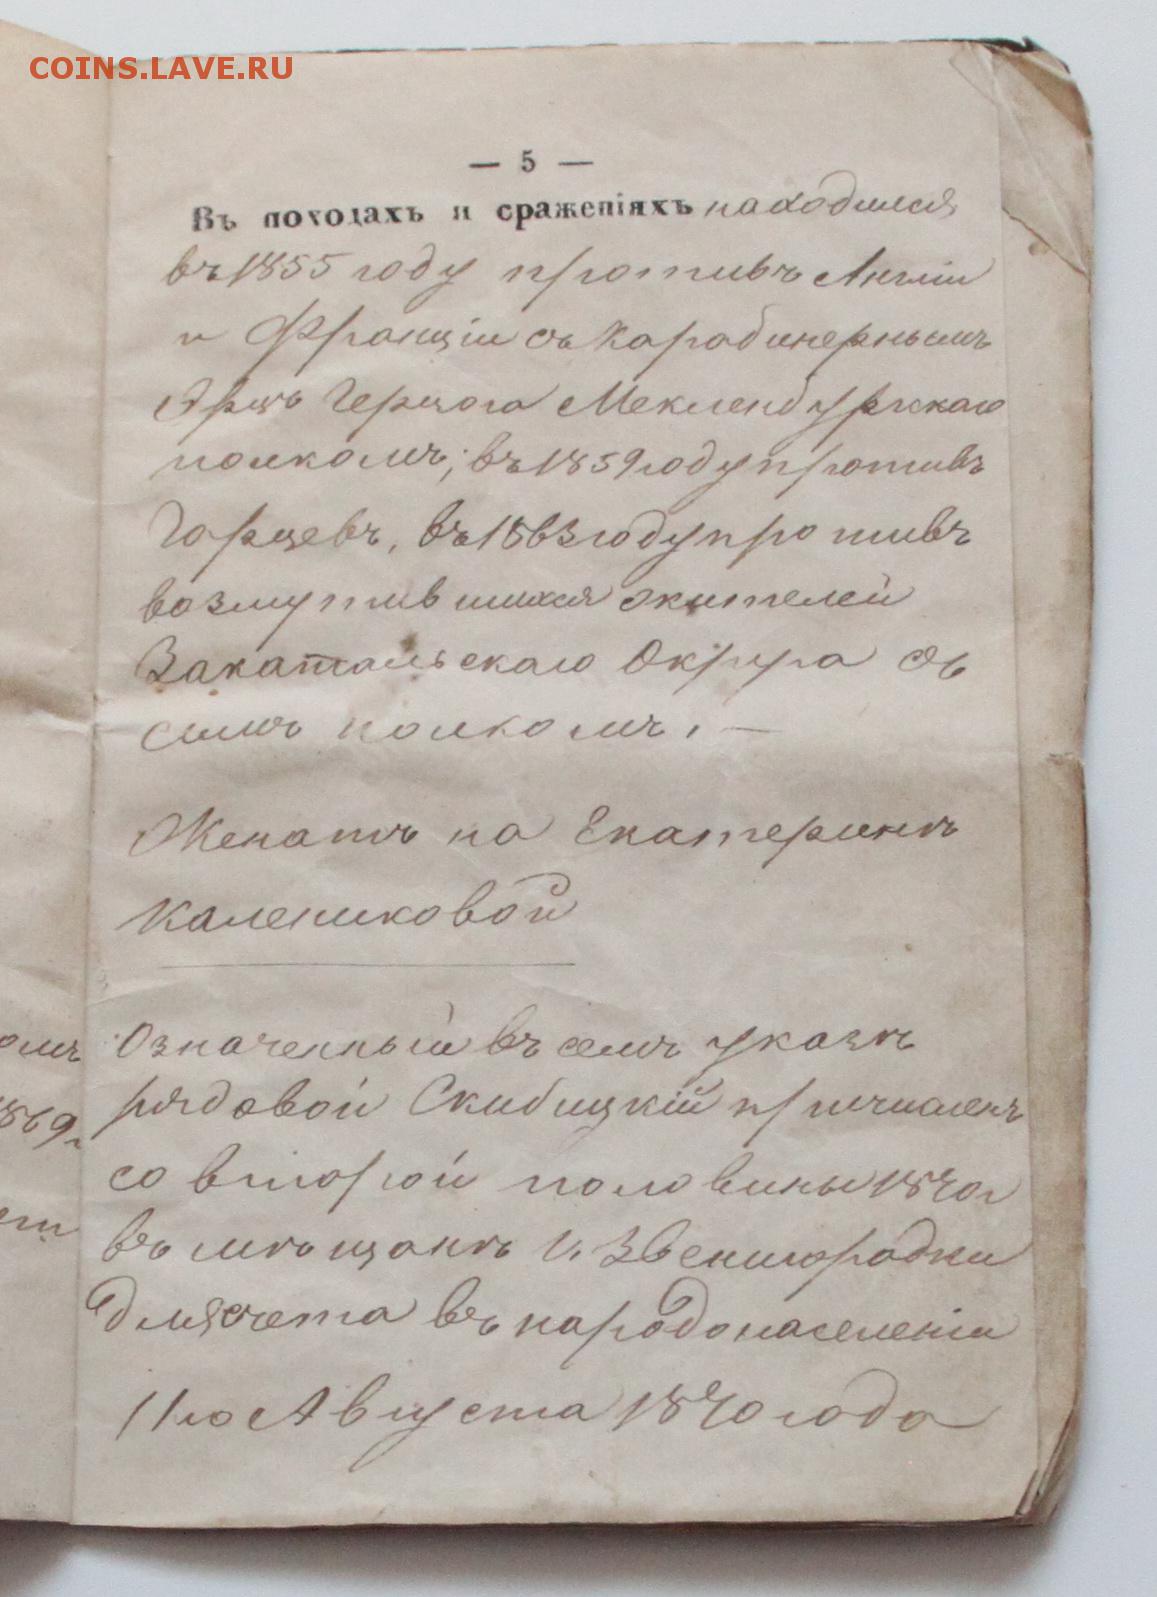 COINS.LAVE.RU
— 5 —
Въ походахъ и сраженіяхъ находился
въ 1855 году противъ Англіи
и Франціи съ Карабинернымъ
Герцога Мекленбургскаго
полкомъ; въ 1859 году противъ
Горцевъ, въ 1863 году противъ
возмутившихся жителей
Закатальскаго Округа съ
симъ полкомъ. —
Женатъ на Екатеринѣ
Калениковой
Означенный въ семъ указѣ
рядовой Скибицкій причисленъ
со второй половины 1870 г
въ мѣщане г. Звенигородки
для счета въ народонаселеніи
11го Августа 1870 года
омъ
1869 г.